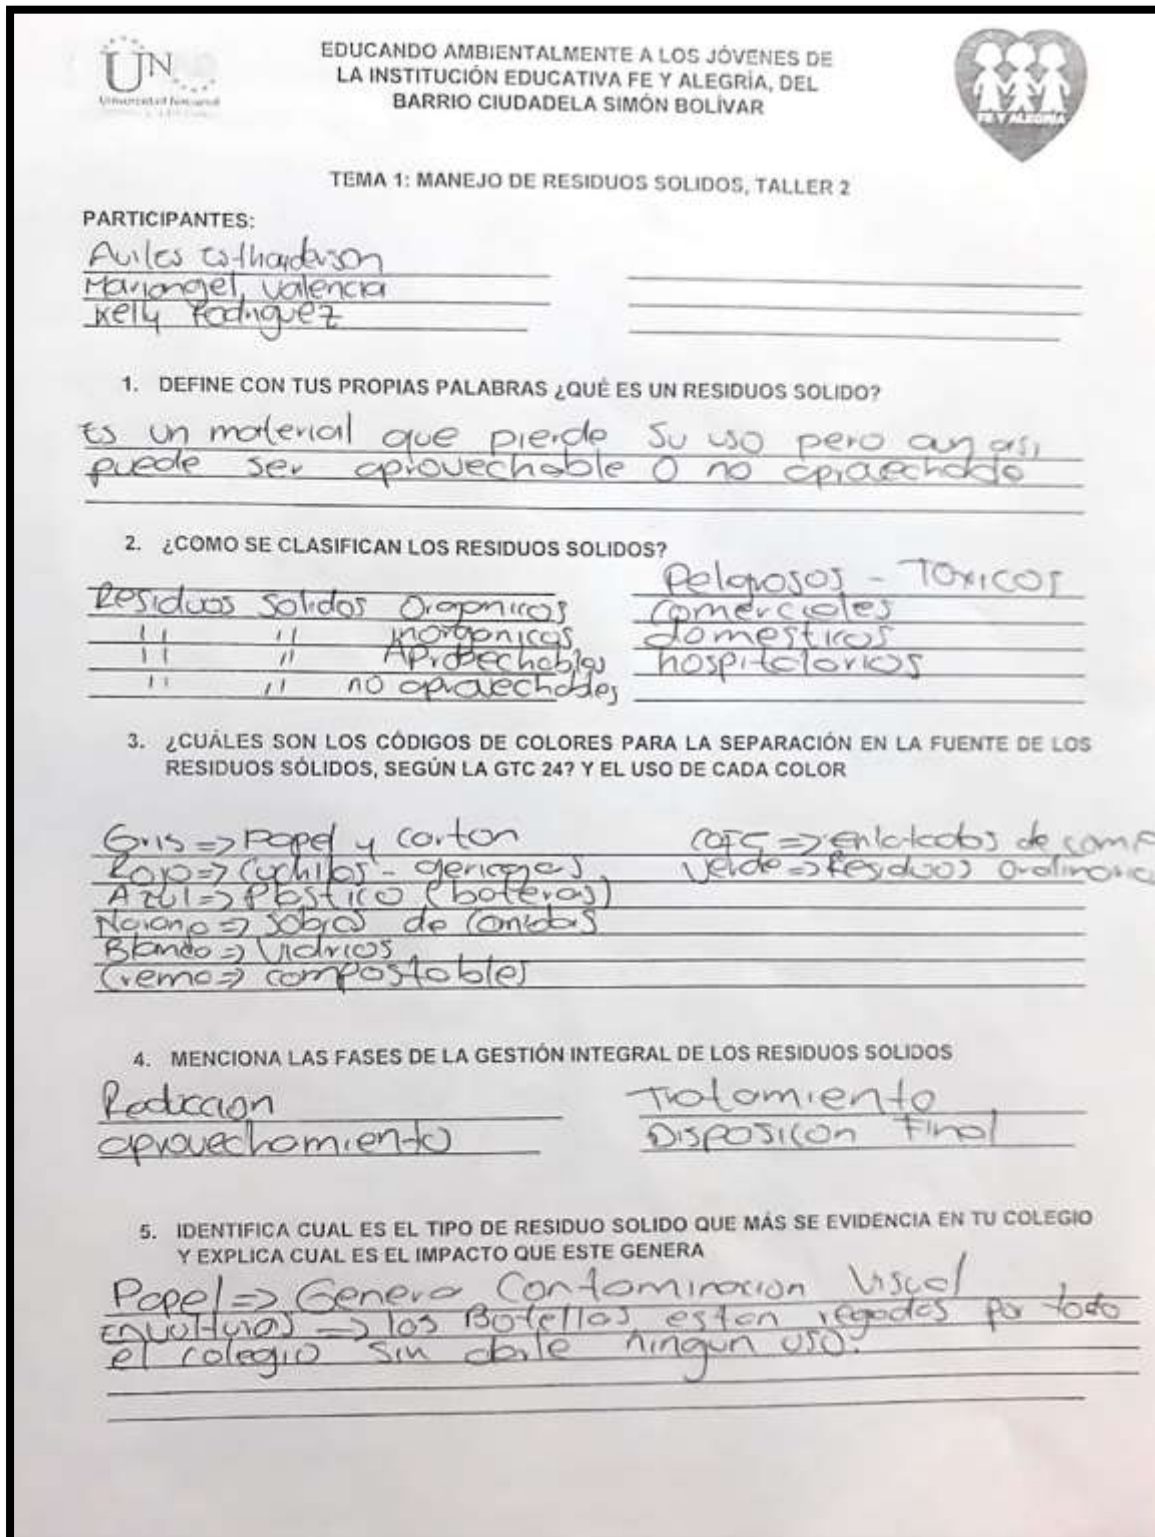 UN
EDUCANDO AMBIENTALMENTE A LOS JÓVENES DE
LA INSTITUCIÓN EDUCATIVA FE Y ALEGRÍA, DEL
BARRIO CIUDADELA SIMÓN BOLÍVAR
FE Y ALEGRIA
TEMA 1: MANEJO DE RESIDUOS SOLIDOS, TALLER 2
PARTICIPANTES:
Aviles
Mariangel, Valencia
Kelly Rodriguez
1. DEFINE CON TUS PROPIAS PALABRAS ¿QUÉ ES UN RESIDUOS SOLIDO?
Es un material que pierde su uso pero aun asi,
puede ser aprovechable o no aprovechado
2. ¿COMO SE CLASIFICAN LOS RESIDUOS SOLIDOS?
Residuos Solidos Organicos
" " inorganicos
" " Aprobechables
" " no aprovechables
Peligrosos - Toxicos
comerciales
domesticos
hospitalarios
3. ¿CUÁLES SON LOS CÓDIGOS DE COLORES PARA LA SEPARACIÓN EN LA FUENTE DE LOS
RESIDUOS SÓLIDOS, SEGÚN LA GTC 24? Y EL USO DE CADA COLOR
Gris => Papel y carton
Rojo => Cuchillas -
Azul => Plastico
Naranja => sobras de comidas
Blanco => Vidrios
Crema => compostables
cafe => enlatados de
Verde => Residuos
4. MENCIONA LAS FASES DE LA GESTIÓN INTEGRAL DE LOS RESIDUOS SOLIDOS
Reduccion
aprovechamiento
Tratamiento
Disposicon Final
5. IDENTIFICA CUAL ES EL TIPO DE RESIDUO SOLIDO QUE MÁS SE EVIDENCIA EN TU COLEGIO
Y EXPLICA CUAL ES EL IMPACTO QUE ESTE GENERA
Papel => Genera Contaminacion Visual
Envolturas => las Botellas estan regadas por todo
el colegio sin darle ningun uso.